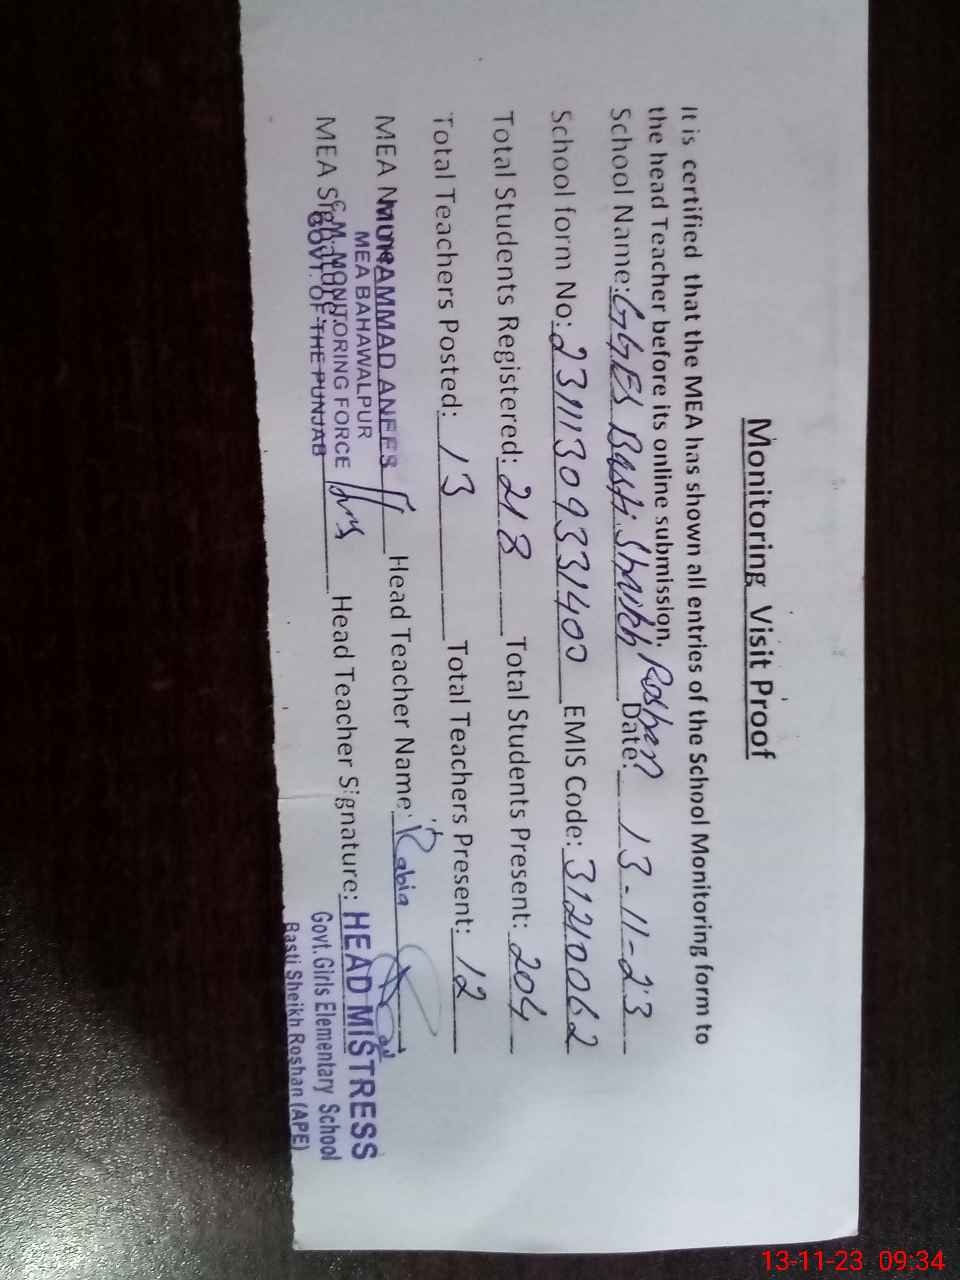 Monitoring Visit Proof
It is certified that the MEA has shown all entries of the School Monitoring form to
the head Teacher before its online submission.
School Name: GGES Basti Shaikh Roshan Date: 13-11-23
School form No: 23111309331400 EMIS Code: 31210062
Total Students Registered: 218 Total Students Present: 204
Total Teachers Posted: 13 Total Teachers Present: 12
MEA Name Head Teacher Name: Rabia
MUHAMMAD ANEES
MEA BAHAWALPUR
MEA Signature Head Teacher Signature:
C.M. MONITORING FORCE
GOVT. OF THE PUNJAB
HEAD MISTRESS
Govt. Girls Elementary School
Basti Sheikh Roshan (APE)
13-11-23 09:34